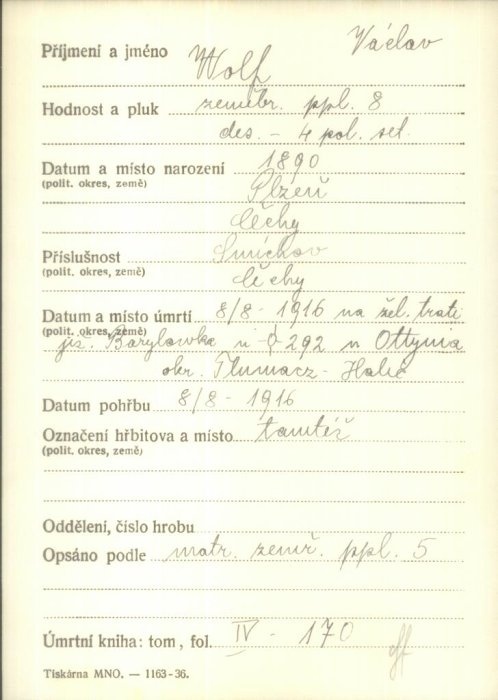 Příjmení a jméno Wolf Václav
Hodnost a pluk zeměbr. ppl. 8
des. - 4 pol. set.
Datum a místo narození 1890
(polit. okres, země) Plzeň
Čechy
Příslušnost Smíchov
(polit. okres, země) Čechy
Datum a místo úmrtí 8/8 - 1916 na žel. trati
(polit. okres, země)
již. Barylowka n 292 n Ottynia
okr. Tlumacz - Halič
Datum pohřbu 8/8 - 1916
Označení hřbitova a místo tamtéž
(polit. okres, země)
Oddělení, číslo hrobu
Opsáno podle matr. zeměř. ppl. 5
Úmrtní kniha: tom, fol. IV - 170
Tiskárna MNO. — 1163-36.